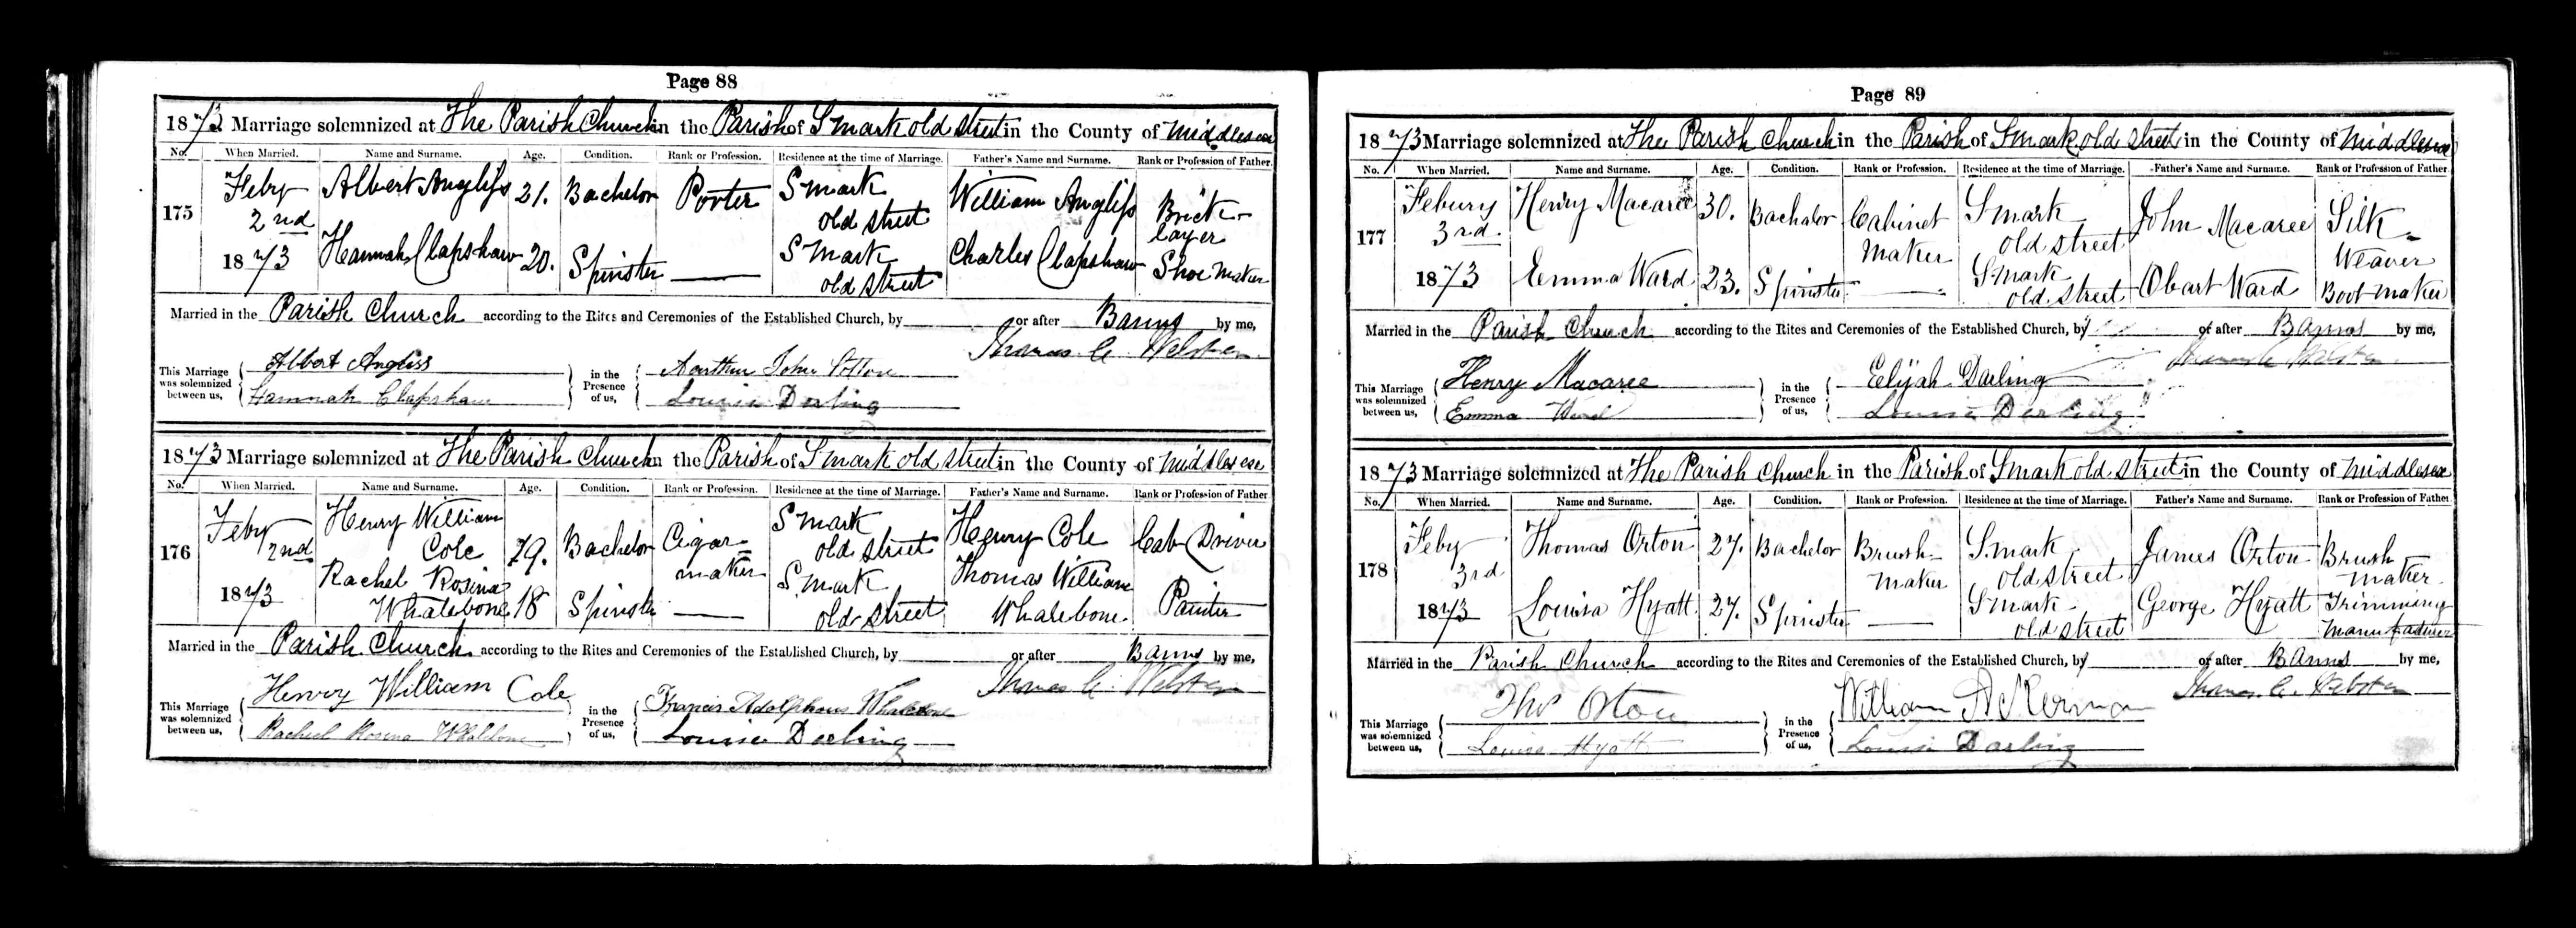 Page 88
1873 Marriage solemnized at The Parish Church in the Parish of S mark old street in the County of Middlesex
No. When Married. Name and Surname. Age. Condition. Rank or Profession. Residence at the time of Marriage. Father's Name and Surname. Rank or Profession of Father.
175 Feby 2nd 1873 Albert Angliss 21. Bachelor Porter S mark old street William Angliss Brick layer
Hannah Clapshaw 20. Spinster S mark old street Charles Clapshaw Shoe Maker
Married in the Parish Church according to the Rites and Ceremonies of the Established Church, by or after Banns by me,
Thomas Webster
This Marriage was solemnized between us, Albert Angliss in the Presence of us, John
Hannah Clapshaw Louisa Darling
1873 Marriage solemnized at The Parish Church in the Parish of S mark old street in the County of Middlesex
No. When Married. Name and Surname. Age. Condition. Rank or Profession. Residence at the time of Marriage. Father's Name and Surname. Rank or Profession of Father
176 Feby 2nd 1873 Henry William Cole 19. Bachelor Cigar maker S mark old street Henry Cole Cab Driver
Rachel Rosina Whalebone 18 Spinster S mark old street Thomas William Whalebone Painter
Married in the Parish Church according to the Rites and Ceremonies of the Established Church, by or after Banns by me,
Thomas Webster
This Marriage was solemnized between us, Henry William Cole in the Presence of us, Francis Adolphous Whalebone
Rachel Rosina Whalebone Louisa Darling
Page 89
1873 Marriage solemnized at The Parish Church in the Parish of S mark old street in the County of Middlesex
No. When Married. Name and Surname. Age. Condition. Rank or Profession. Residence at the time of Marriage. Father's Name and Surname. Rank or Profession of Father
177 Febury 3rd. 1873 Henry Macaree 30. Bachelor Cabinet Maker S mark old street John Macaree Silk Weaver
Emma Ward 23. Spinster S mark old street Obart Ward Boot maker
Married in the Parish Church according to the Rites and Ceremonies of the Established Church, by or after Banns by me,
Thomas Webster
This Marriage was solemnized between us, Henry Macaree in the Presence of us, Elijah Darling
Emma Ward Louisa Darling
1873 Marriage solemnized at The Parish Church in the Parish of S mark old street in the County of Middlesex
No. When Married. Name and Surname. Age. Condition. Rank or Profession. Residence at the time of Marriage. Father's Name and Surname. Rank or Profession of Father
178 Feby 3rd 1873 Thomas Orton 27. Bachelor Brush maker S mark old street James Orton Brush maker
Louisa Hyatt 27. Spinster S mark old street George Hyatt Trimming Manufacturer
Married in the Parish Church according to the Rites and Ceremonies of the Established Church, by or after Banns by me,
Thomas Webster
This Marriage was solemnized between us, Thos Orton in the Presence of us, William Ackerman
Louisa Hyatt Louisa Darling